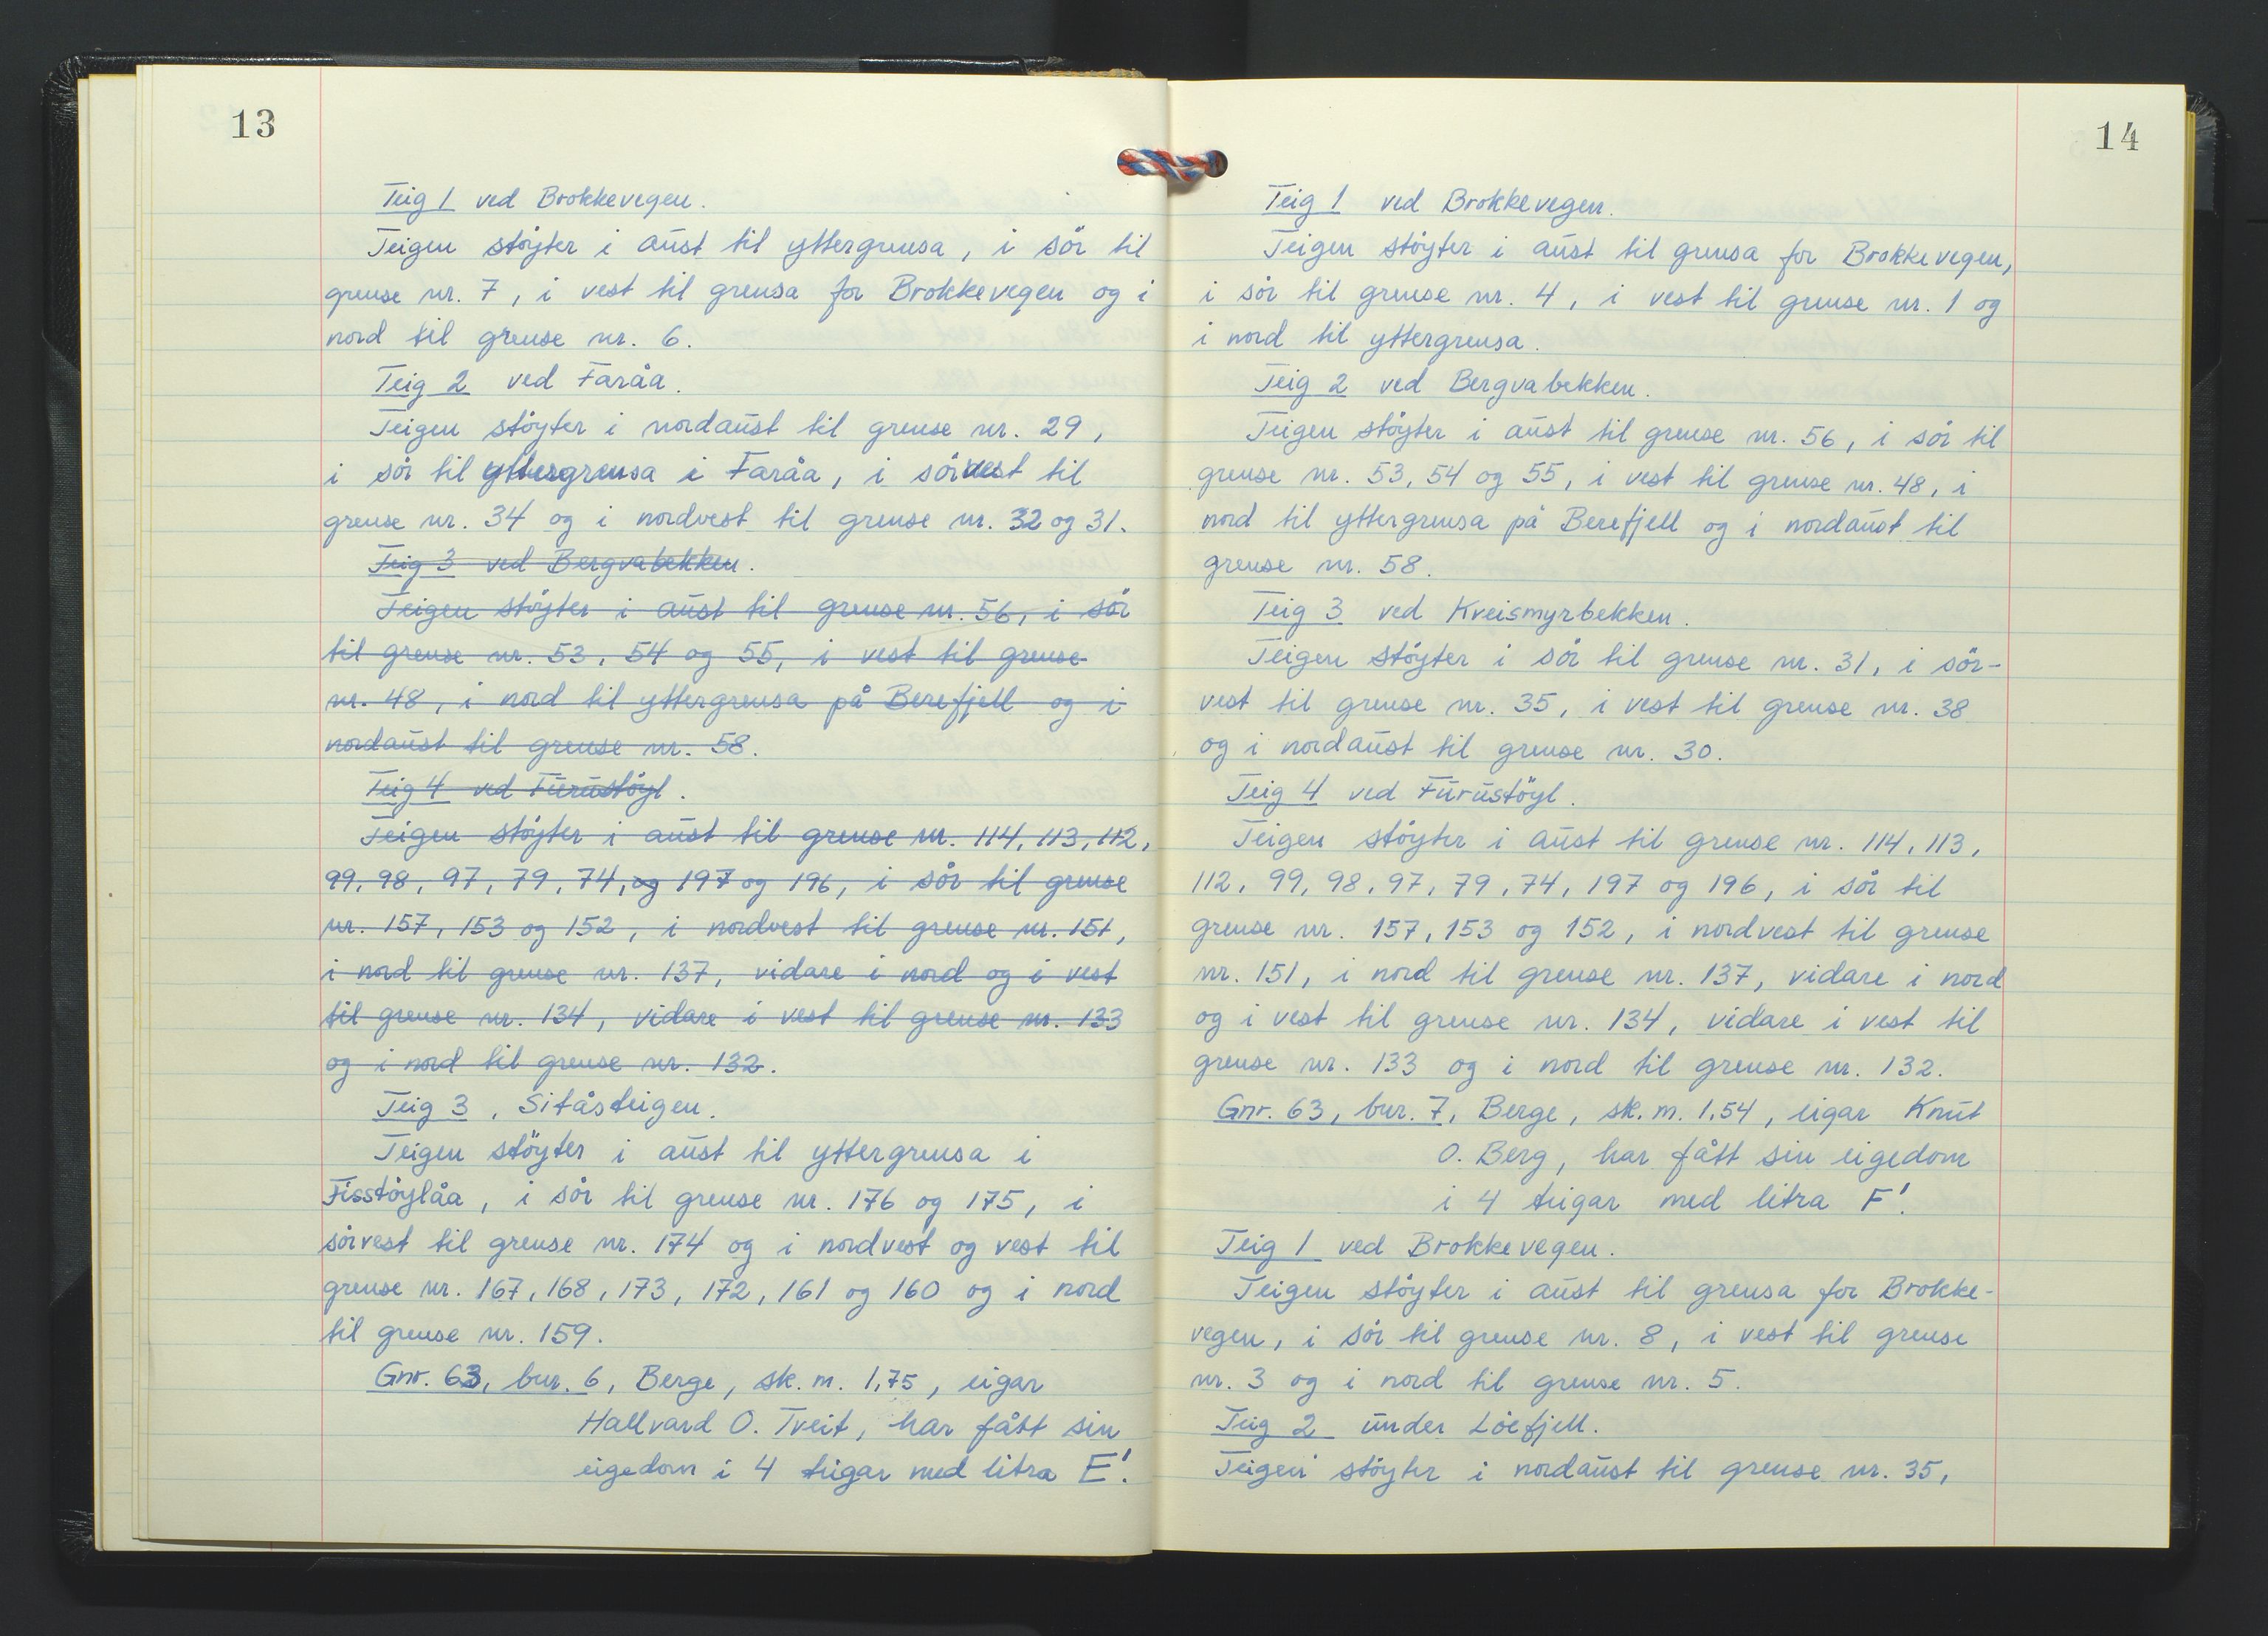 13
Teig 1 ved Brokkevegen.
Teigen støyter i aust til yttergrensa, i sør til
grense nr. 7, i vest til grensa for Brokkevegen og i
nord til grense nr. 6.
Teig 2 ved Faråa.
Teigen støyter i nordaust til grense nr. 29,
i sør til yttergrensa i Faråa, i sørvest til
grense nr. 34 og i nordvest til grense nr. 32 og 31.
Teig 3 ved Bergvabekken.
Teigen støyter i aust til grense nr. 56, i sør
til grense nr. 53, 54 og 55, i vest til grense
nr. 48, i nord til yttergrensa på Berefjell og i
nordaust til grense nr. 58.
Teig 4 ved Furustøyl.
Teigen støyter i aust til grense nr. 114, 113, 112,
99, 98, 97, 79, 74, og 197 og 196, i sør til grense
nr. 157, 153 og 152, i nordvest til grense nr. 151,
i nord til grense nr. 137, vidare i nord og i vest
til grense nr. 134, vidare i vest til grense nr. 133
og i nord til grense nr. 132.
Teig 3, Sitåsteigen.
Teigen støyter i aust til yttergrensa i
Fisstøylåa, i sør til grense nr. 176 og 175, i
sørvest til grense nr. 174 og i nordvest og vest til
grense nr. 167, 168, 173, 172, 161 og 160 og i nord
til grense nr. 159.
Gnr. 63, bnr. 6, Berge, sk. m. 1,75, eigar
Hallvard O. Tveit, har fått sin
eigedom i 4 teigar med litra E'.
14
Teig 1 ved Brokkevegen.
Teigen støyter i aust til grensa for Brokkevegen,
i sør til grense nr. 4, i vest til grense nr. 1 og
i nord til yttergrensa.
Teig 2 ved Bergvabekken.
Teigen støyter i aust til grense nr. 56, i sør til
grense nr. 53, 54 og 55, i vest til grense nr. 48, i
nord til yttergrensa på Berefjell og i nordaust til
grense nr. 58.
Teig 3 ved Kveismyrbekken.
Teigen støyter i sør til grense nr. 31, i sør-
vest til grense nr. 35, i vest til grense nr. 38
og i nordaust til grense nr. 30.
Teig 4 ved Furustøyl.
Teigen støyter i aust til grense nr. 114, 113,
112, 99, 98, 97, 79, 74, 197 og 196, i sør til
grense nr. 157, 153 og 152, i nordvest til grense
nr. 151, i nord til grense nr. 137, vidare i nord
og i vest til grense nr. 134, vidare i vest til
grense nr. 133 og i nord til grense nr. 132.
Gnr. 63, bnr. 7, Berge, sk. m. 1,54, eigar Knut
O. Berg, har fått sin eigedom
i 4 teigar med litra F'.
Teig 1 ved Brokkevegen.
Teigen støyter i aust til grensa for Brokke-
vegen, i sør til grense nr. 8, i vest til grense
nr. 3 og i nord til grense nr. 5.
Teig 2 under Løefjell.
Teigen støyter i nordaust til grense nr. 35,